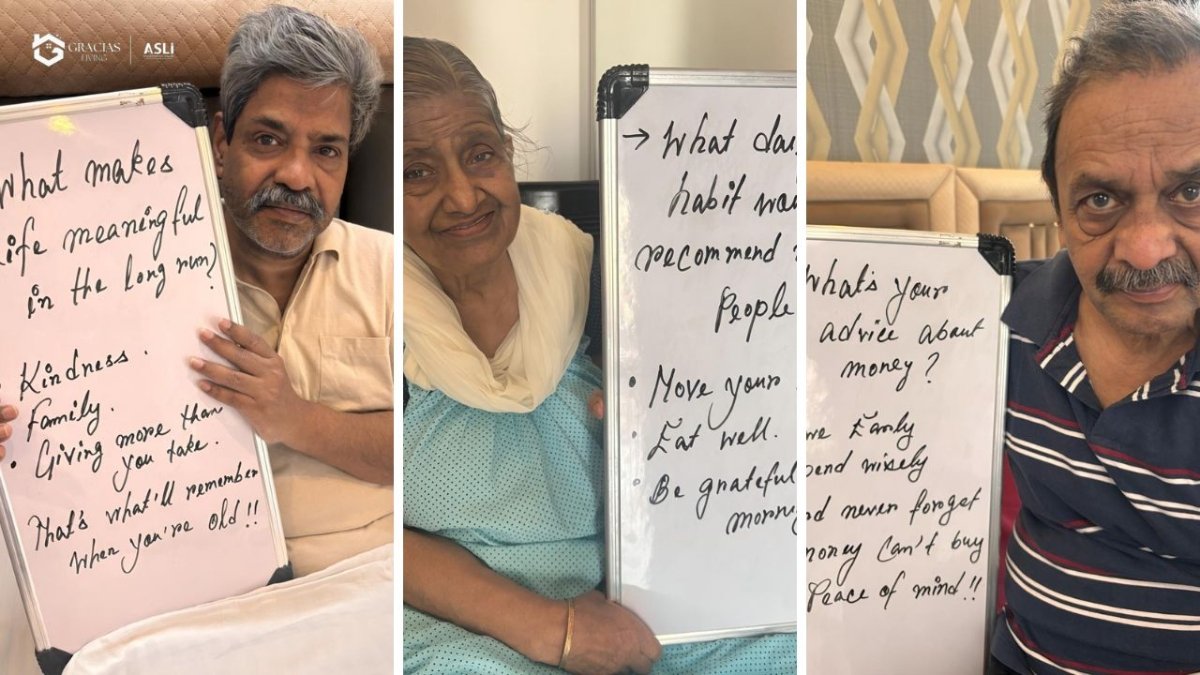 GRACIAS
LIVING
ASLI
What makes
life meaningful
in the long run?
Kindness.
Family.
Giving more than
you take.
That's what'll remember
when you're old!!
→ What
habit
recommend
People
• Move your
• Eat well.
• Be grateful
What's your
advice about
money?
Early
wisely
never forget
money can't buy
Peace of mind!!